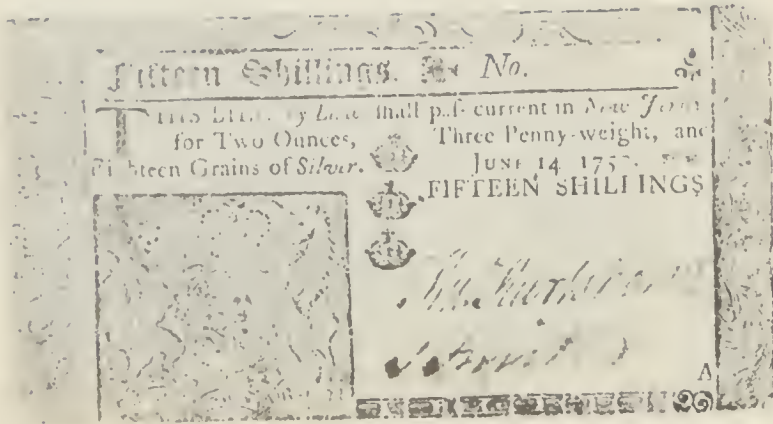 Fifteen Shillings. No.
THIS BILL by Law shall pass current in New Jersey
for Two Ounces, Three Penny-weight, and
Eighteen Grains of Silver. JUNE 14
FIFTEEN SHILLINGS
A